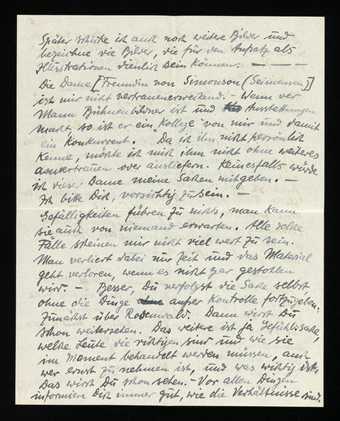 Später schicke ich auch noch weitere Bilder und
bezeichne die Bilder, die für den Aufsatz als
Illustrationen dienlich sein können. — — —
Die Dame [Freundin von Simonson (Seimensen)]
ist mir nicht vertrauenerweckend. – Wenn der
Mann Bühnenbildner ist und Ausstellungen
macht, so ist er ein Kollege von mir und damit
ein Konkurrent. Da ich ihn nicht persönlich
kenne, möchte ich mich ihm nicht ohne weiteres
anvertrauen oder ausliefern. Keinesfalls würde
ich dieser Dame meine Sachen mitgeben. —
Ich bitte Dich, vorsichtig zu sein. —
Gefälligkeiten führen zu nichts, man kann
sie auch von niemand erwarten. Alle solche
Fälle scheinen mir nicht viel wert zu sein.
Man verliert dabei nur Zeit und das Material
geht verloren, wenn es nicht gar gestohlen
wird. – Besser, Du verfolgst die Sache selbst
ohne die Dinge ausser Kontrolle fortzugeben.
Zunächst über Rosenwald. Dann wirst Du
schon weitersehen. Das weitere ist ja Gefühlssache,
welche Leute die richtigen sind und wie sie
im Moment behandelt werden müssen, auch
wer ernst zu nehmen ist, und was wichtig ist.
Das wirst Du schon sehen. – Vor allen Dingen
informiere Dich immer gut, wie die Verhältnisse sind.